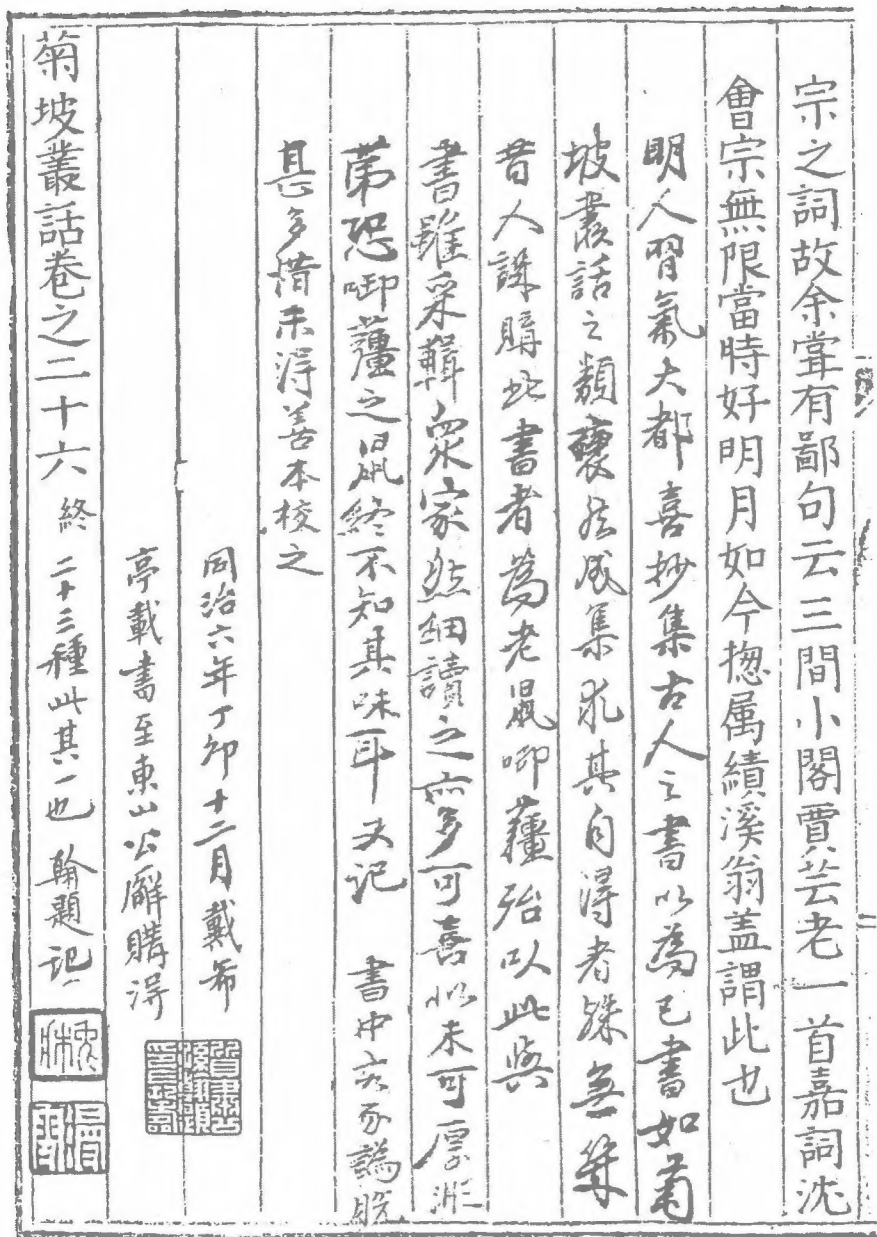 宗之詞故余甞有鄙句云三間小閣賈芸老一首嘉詞沈
會宗無限當時好明月如今揔屬績溪翁盖謂此也
明人習氣大都喜抄集古人之書以為己書如菊
坡叢話之類裒然成集求其自淂者殊無算
昔人誚購此書者為老鼠啣薑殆以此與
書雖采輯眾家然細讀之亦多可喜似未可厚非
苐恐啣薑之鼠終不知其味耳 又記 書中亥豕譌脫
甚多惜未淂善本校之
同治六年丁卯十二月戴希
亭載書至東山公廨購淂
菊坡叢話卷之二十六 終 二十三種此其一也 翰題記